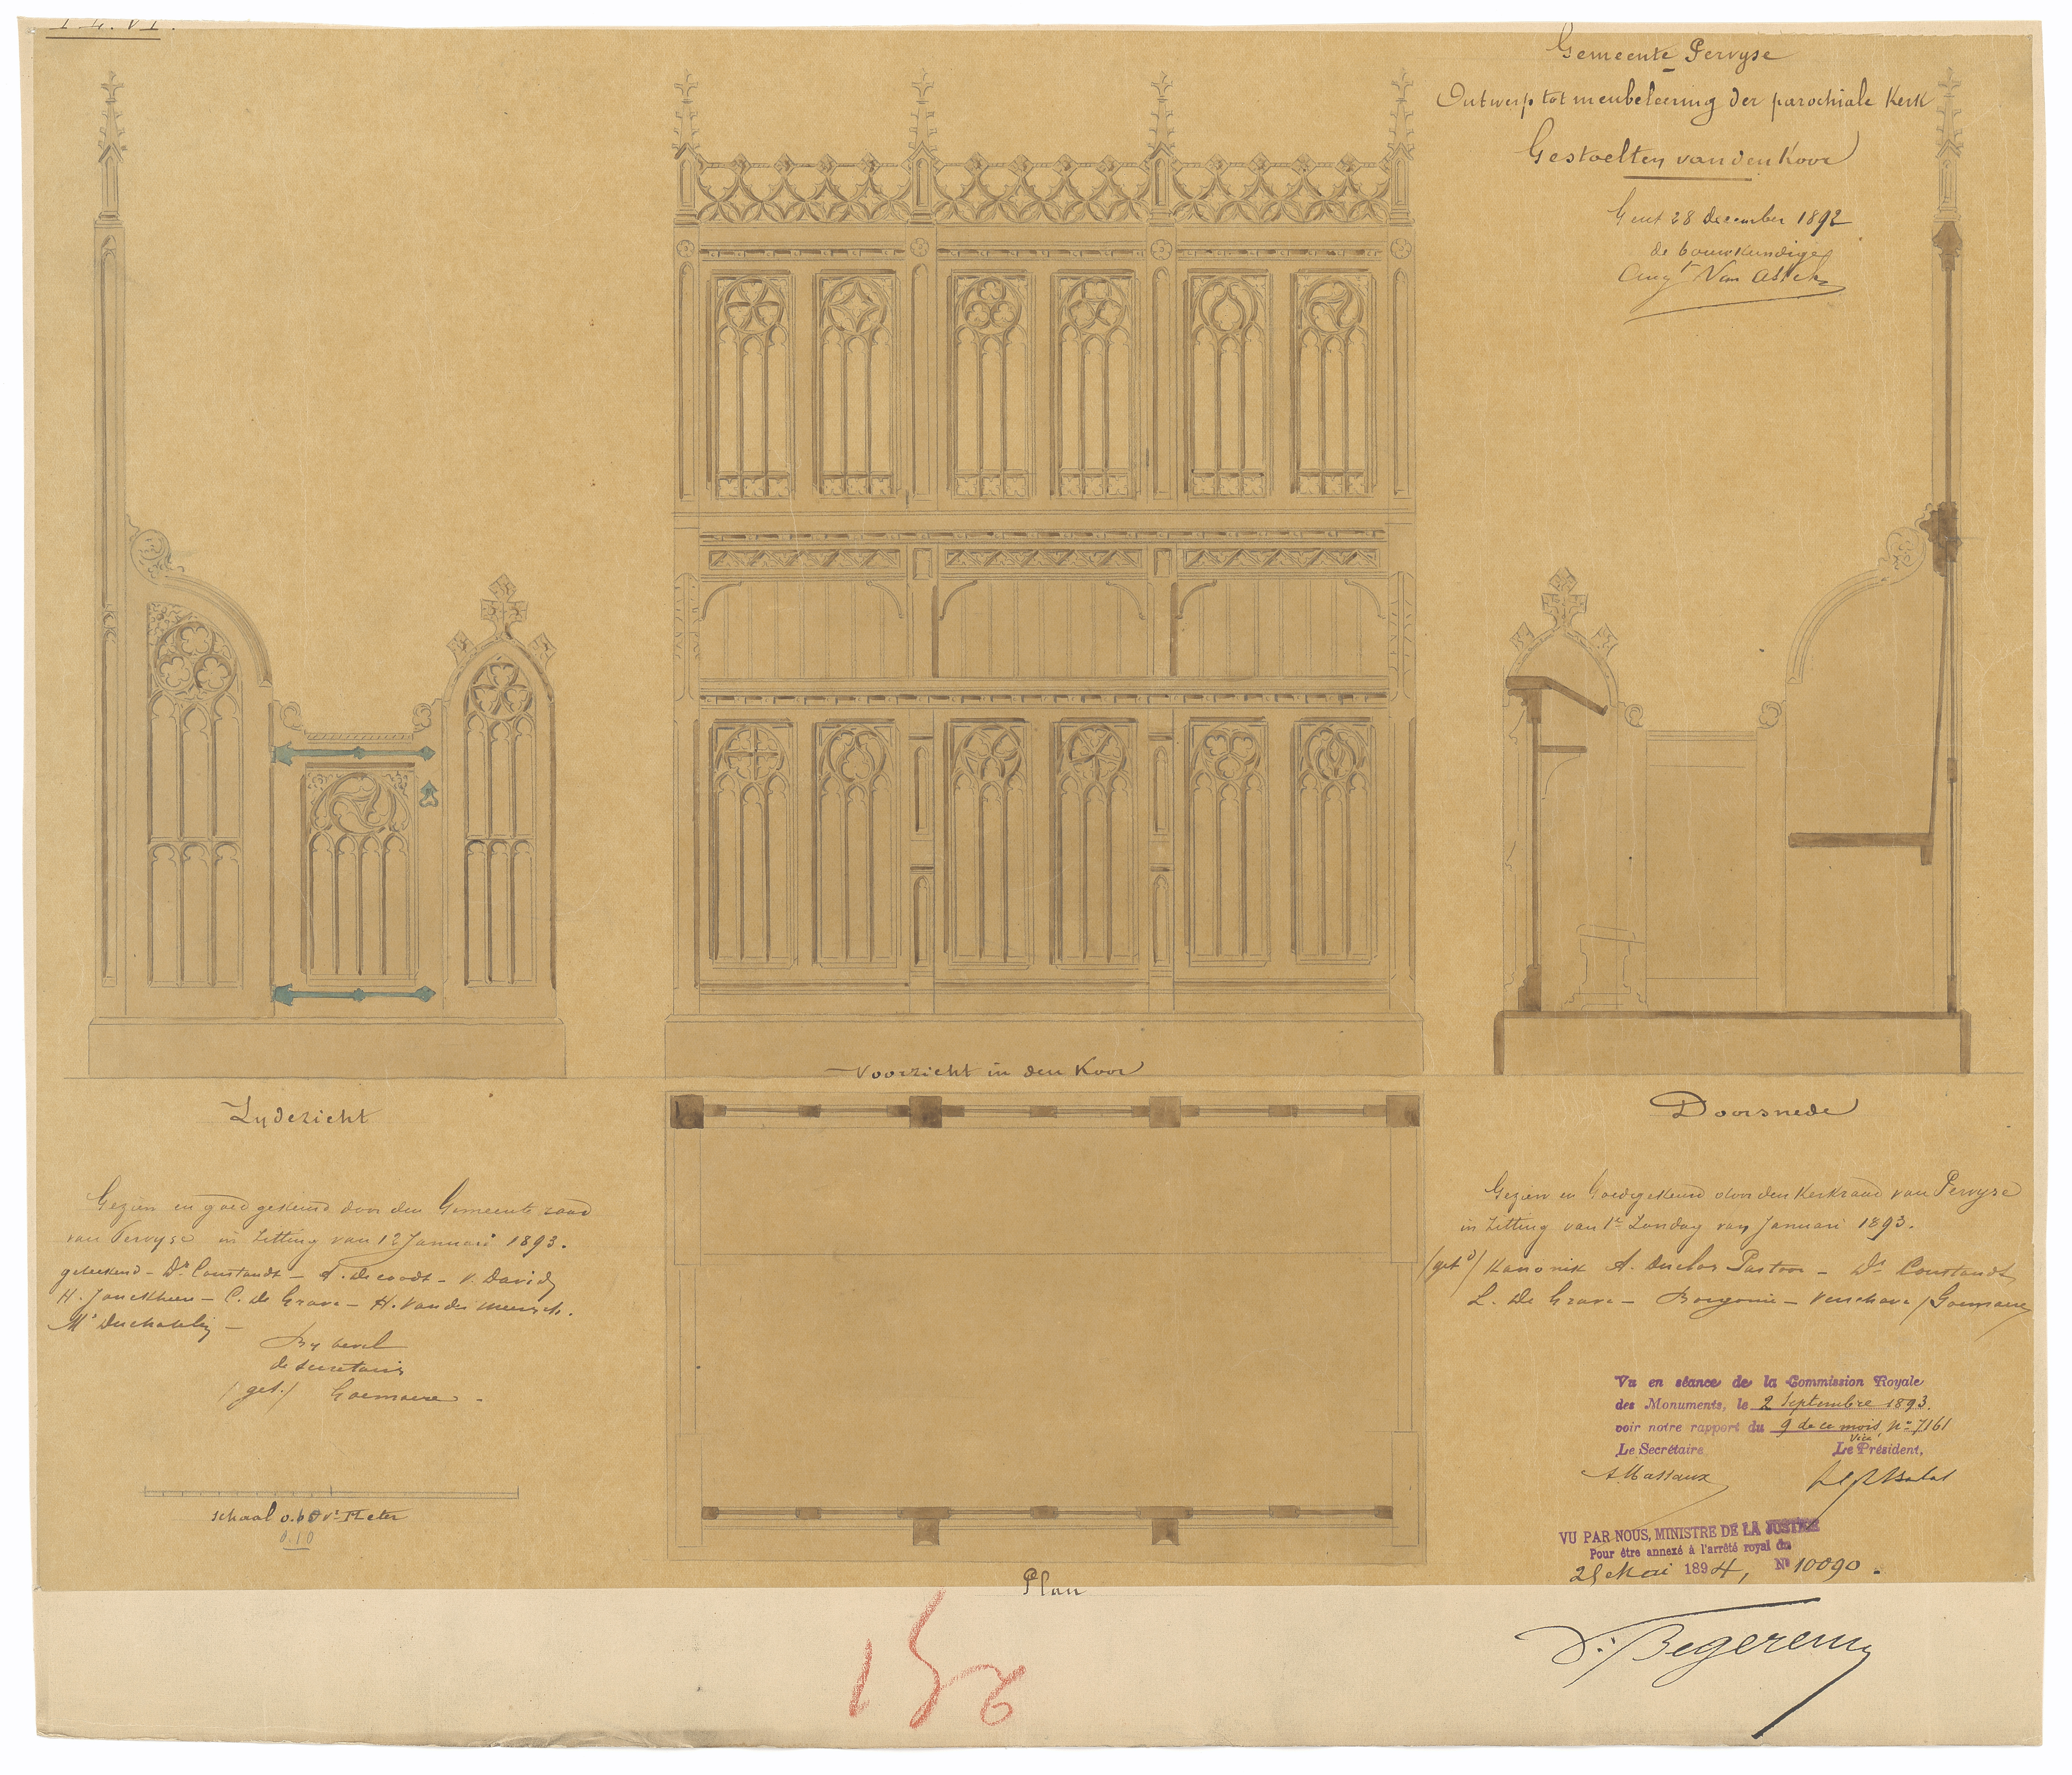 Pl. VI.
Gemeente Pervyse
Ontwerp tot meubeleering der parochiale Kerk
Gestoelten van den Koor
Gent 28 december 1892
de bouwkundige
Aug^t Van Assche
Voorzicht in den Koor
Zydezicht
Doorsnede
Gezien en goedgekeurd door den Gemeenteraad
van Pervyse in zitting van 12 Januari 1893.
geteekend - D^r Coustandt - A. Decoodt - V. David
H. Jonckheere - C. De Grave - H. Vander Meersch.
By bevel
de secretaris
(get.) Goemaere -
schaal 0.10 v^r Meter
0.10
Plan
Gezien en Goedgekeurd door den Kerkraad van Pervyse
in Zitting van 1^e Zondag van Januari 1893.
(get^d) Kanonik A. Duclos Pastoor - D^r Coustandt
L. De Grave - Verschave / Goemaere
Vu en séance de la Commission Royale
des Monuments, le 2 Septembre 1893.
voir notre rapport du 9 de ce mois, N° 7161
Le Secrétaire, Le Vice Président,
A. Massaux
VU PAR NOUS, MINISTRE DE LA JUSTICE
Pour être annexé à l'arrêté royal du
25 Mai 1894, N° 10090.
V. Begerem
156